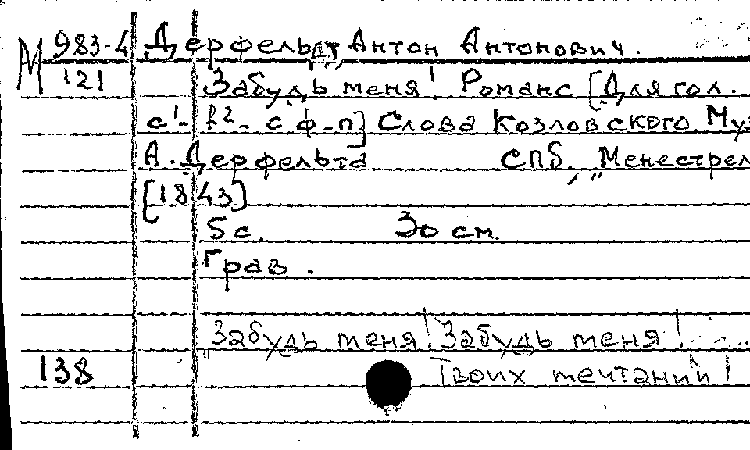 М 983-4 Дерфельдт, Антон Антонович.
121 Забудь меня! Романс [Для гол.
с¹-f² с ф-п] Слова Козловского. Муз
А. Дерфельта СПб, „Менестрел
[1843]
5 с. 30 см.
Грав.
Забудь меня! Забудь меня!
138 Твоих мечтаний!